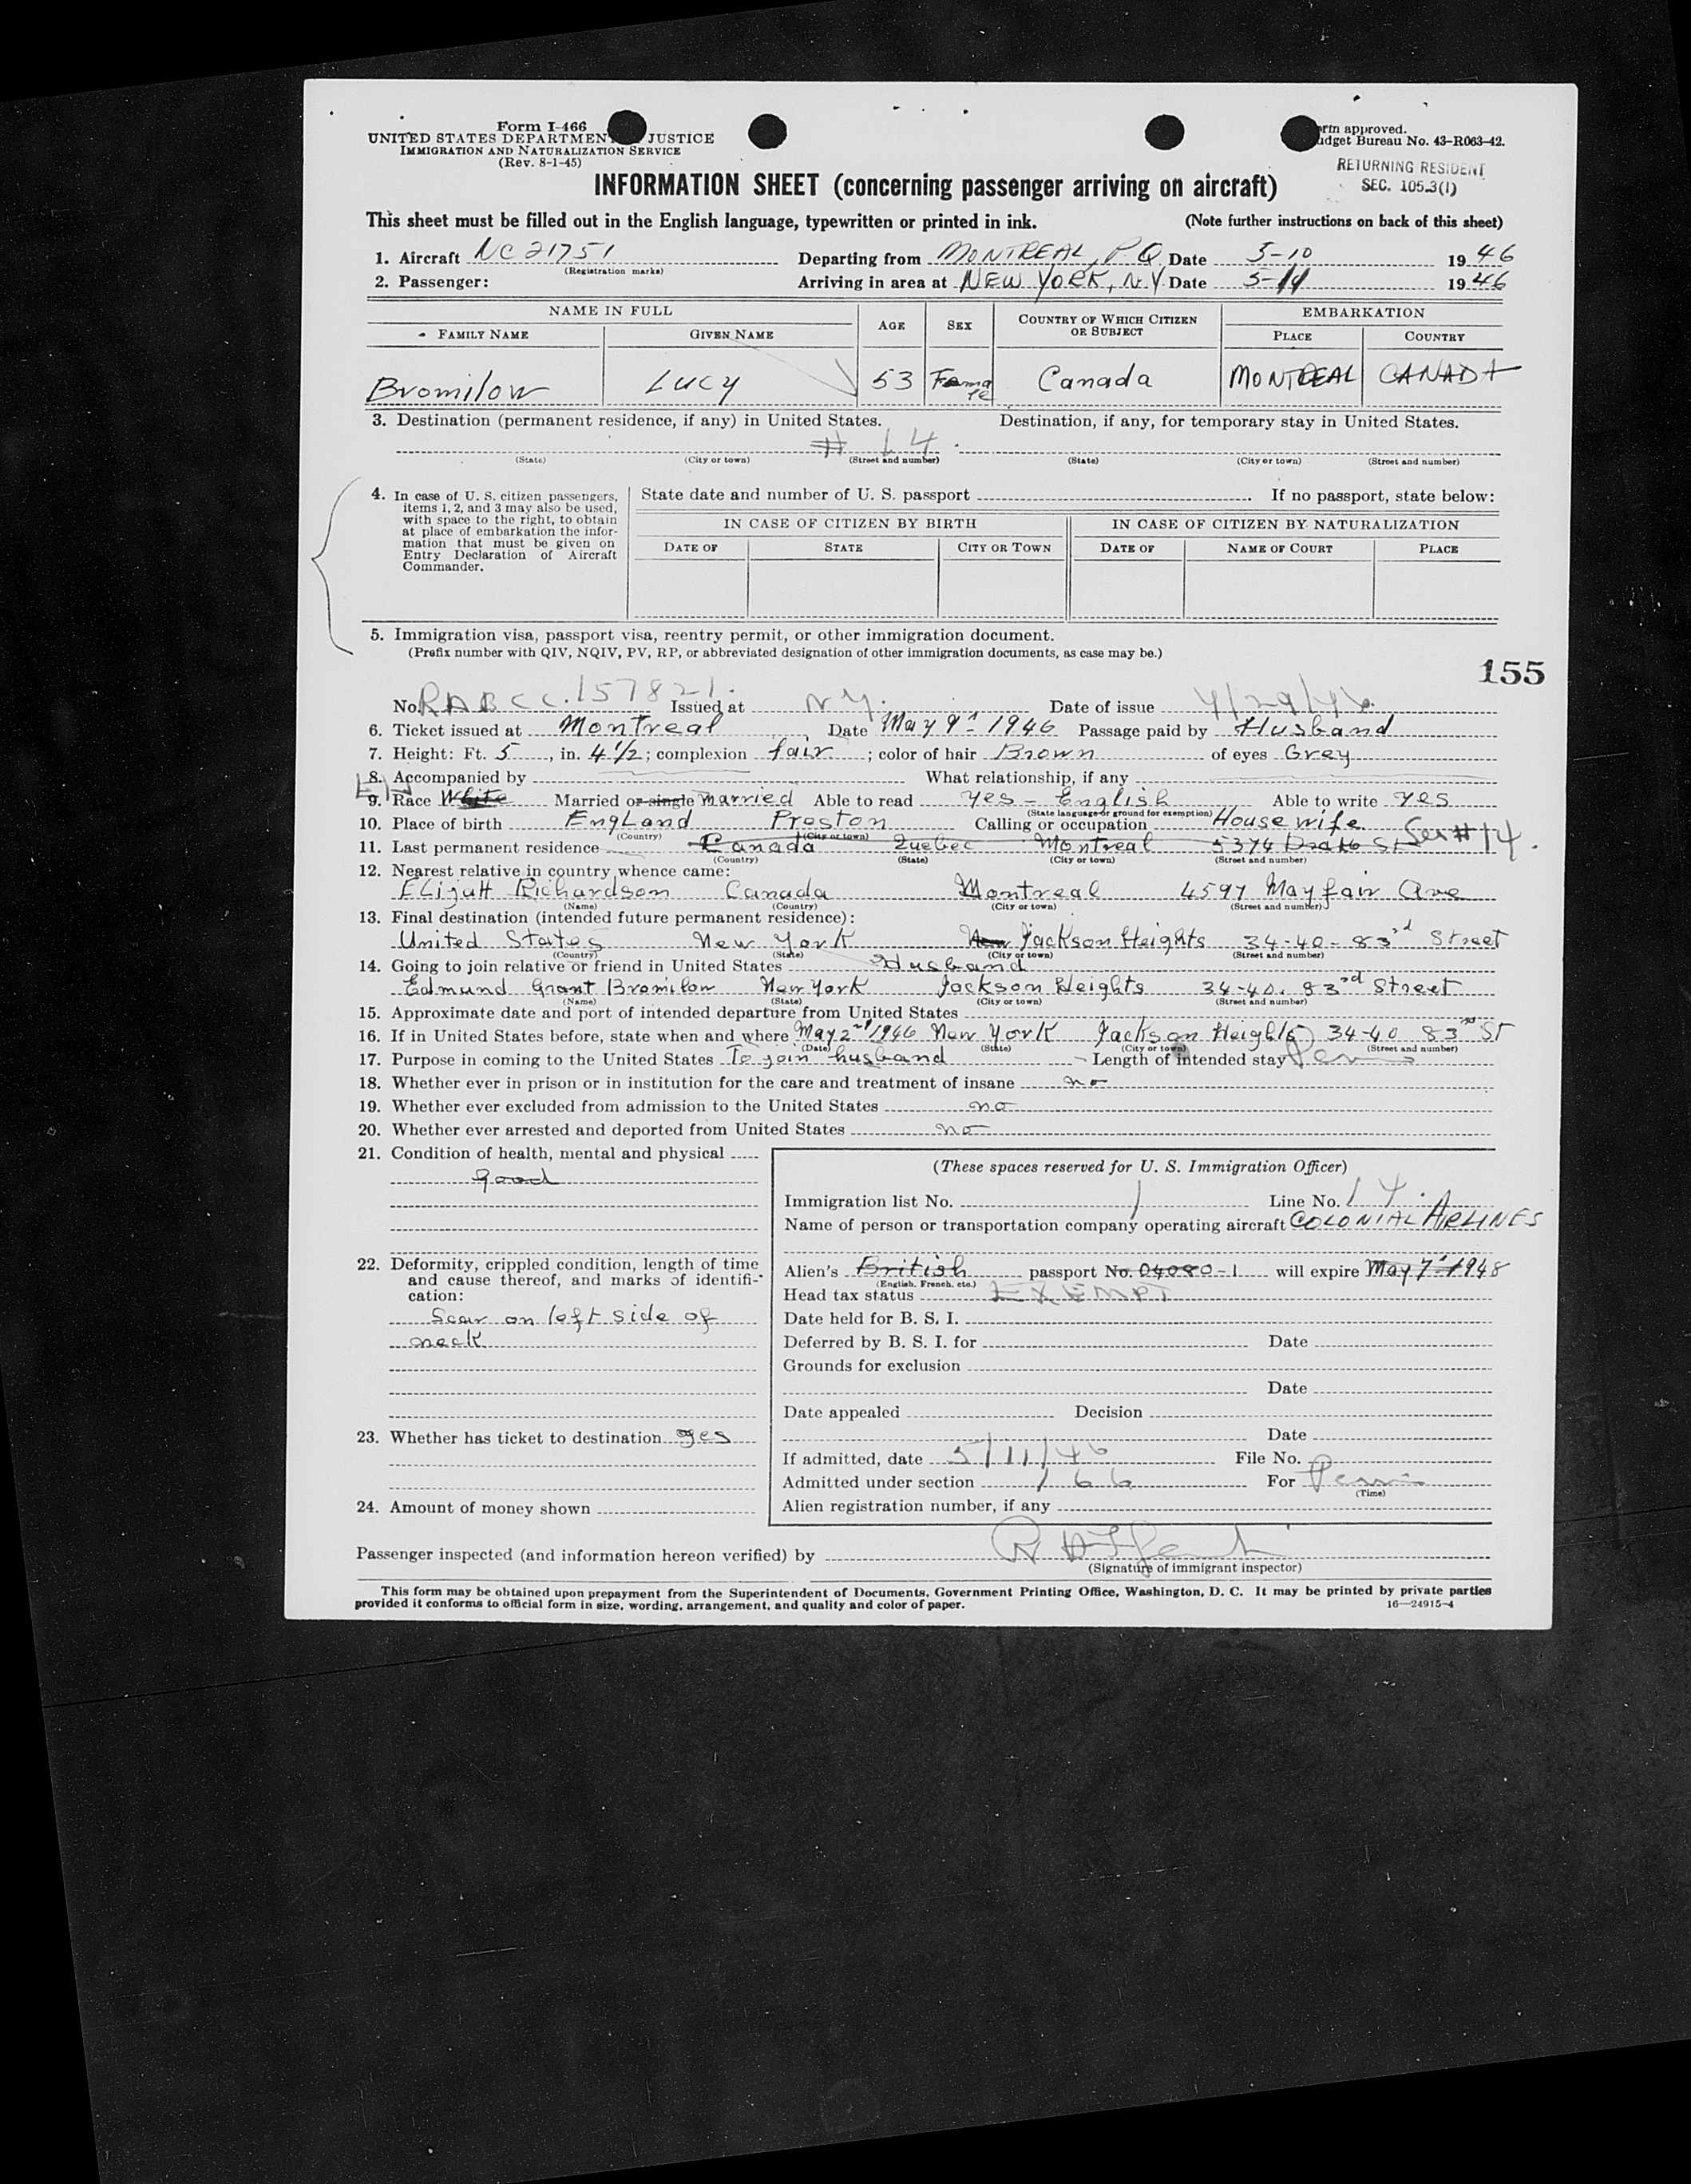 Form I-466
UNITED STATES DEPARTMENT JUSTICE
IMMIGRATION AND NATURALIZATION SERVICE
(Rev. 8-1-45)
approved.
Bureau No. 43-R063-42.
RETURNING RESIDENT
SEC. 105.3(1)
INFORMATION SHEET (concerning passenger arriving on aircraft)
This sheet must be filled out in the English language, typewritten or printed in ink. (Note further instructions on back of this sheet)
1. Aircraft NC 21751 Departing from MONTREAL, P Q. Date 5-10 1946
(Registration marks)
2. Passenger: Arriving in area at NEW YORK, N.Y. Date 5-11 1946
NAME IN FULL AGE SEX COUNTRY OF WHICH CITIZEN OR SUBJECT EMBARKATION
FAMILY NAME GIVEN NAME PLACE COUNTRY
Bromilow LUCY 53 Female Canada MONTREAL CANADA
3. Destination (permanent residence, if any) in United States. Destination, if any, for temporary stay in United States.
# 14.
(State) (City or town) (Street and number) (State) (City or town) (Street and number)
4. In case of U. S. citizen passengers, items 1, 2, and 3 may also be used, with space to the right, to obtain at place of embarkation the information that must be given on Entry Declaration of Aircraft Commander.
State date and number of U. S. passport If no passport, state below:
IN CASE OF CITIZEN BY BIRTH IN CASE OF CITIZEN BY NATURALIZATION
DATE OF STATE CITY OR TOWN DATE OF NAME OF COURT PLACE
5. Immigration visa, passport visa, reentry permit, or other immigration document.
(Prefix number with QIV, NQIV, PV, RP, or abbreviated designation of other immigration documents, as case may be.)
155
No. RABCC.157821. Issued at NY. Date of issue 4/29/46.
6. Ticket issued at Montreal Date May 9th 1946 Passage paid by Husband
7. Height: Ft. 5, in. 4 1/2; complexion fair; color of hair Brown of eyes Grey
8. Accompanied by What relationship, if any
9. Race White Married or single Married Able to read yes - English Able to write yes
(State language or ground for exemption)
10. Place of birth England Preston Calling or occupation House wife
(Country) (City or town)
11. Last permanent residence Canada Quebec Montreal 5374 Drake St See # 14.
(Country) (State) (City or town) (Street and number)
12. Nearest relative in country whence came:
Elijah Richardson Canada Montreal 4597 Mayfair Ave
(Name) (Country) (City or town) (Street and number)
13. Final destination (intended future permanent residence):
United States New York New Jackson Heights 34-40-83rd Street
(Country) (State) (City or town) (Street and number)
14. Going to join relative or friend in United States Husband
Edmund Grant Bromilow New York Jackson Heights 34-40. 83rd Street
(Name) (State) (City or town) (Street and number)
15. Approximate date and port of intended departure from United States
16. If in United States before, state when and where May 2nd 1946 New York Jackson Heights 34-40 83rd St
(Date) (State) (City or town) (Street and number)
17. Purpose in coming to the United States To join husband Length of intended stay Perm
18. Whether ever in prison or in institution for the care and treatment of insane no
19. Whether ever excluded from admission to the United States no
20. Whether ever arrested and deported from United States no
21. Condition of health, mental and physical
good
22. Deformity, crippled condition, length of time and cause thereof, and marks of identification:
Scar on left side of
neck
23. Whether has ticket to destination yes
24. Amount of money shown
(These spaces reserved for U. S. Immigration Officer)
Immigration list No. 1 Line No. 14.
Name of person or transportation company operating aircraft COLONIAL AIRLINES
Alien's British passport No. 04080-1 will expire May 7th 1948
(English, French, etc.)
Head tax status EXEMPT
Date held for B. S. I.
Deferred by B. S. I. for Date
Grounds for exclusion
Date
Date appealed Decision
Date
If admitted, date 5/11/46 File No.
Admitted under section 166 For Perm
(Time)
Alien registration number, if any
Passenger inspected (and information hereon verified) by
(Signature of immigrant inspector)
This form may be obtained upon prepayment from the Superintendent of Documents, Government Printing Office, Washington, D. C. It may be printed by private parties
provided it conforms to official form in size, wording, arrangement, and quality and color of paper.
16—24915-4